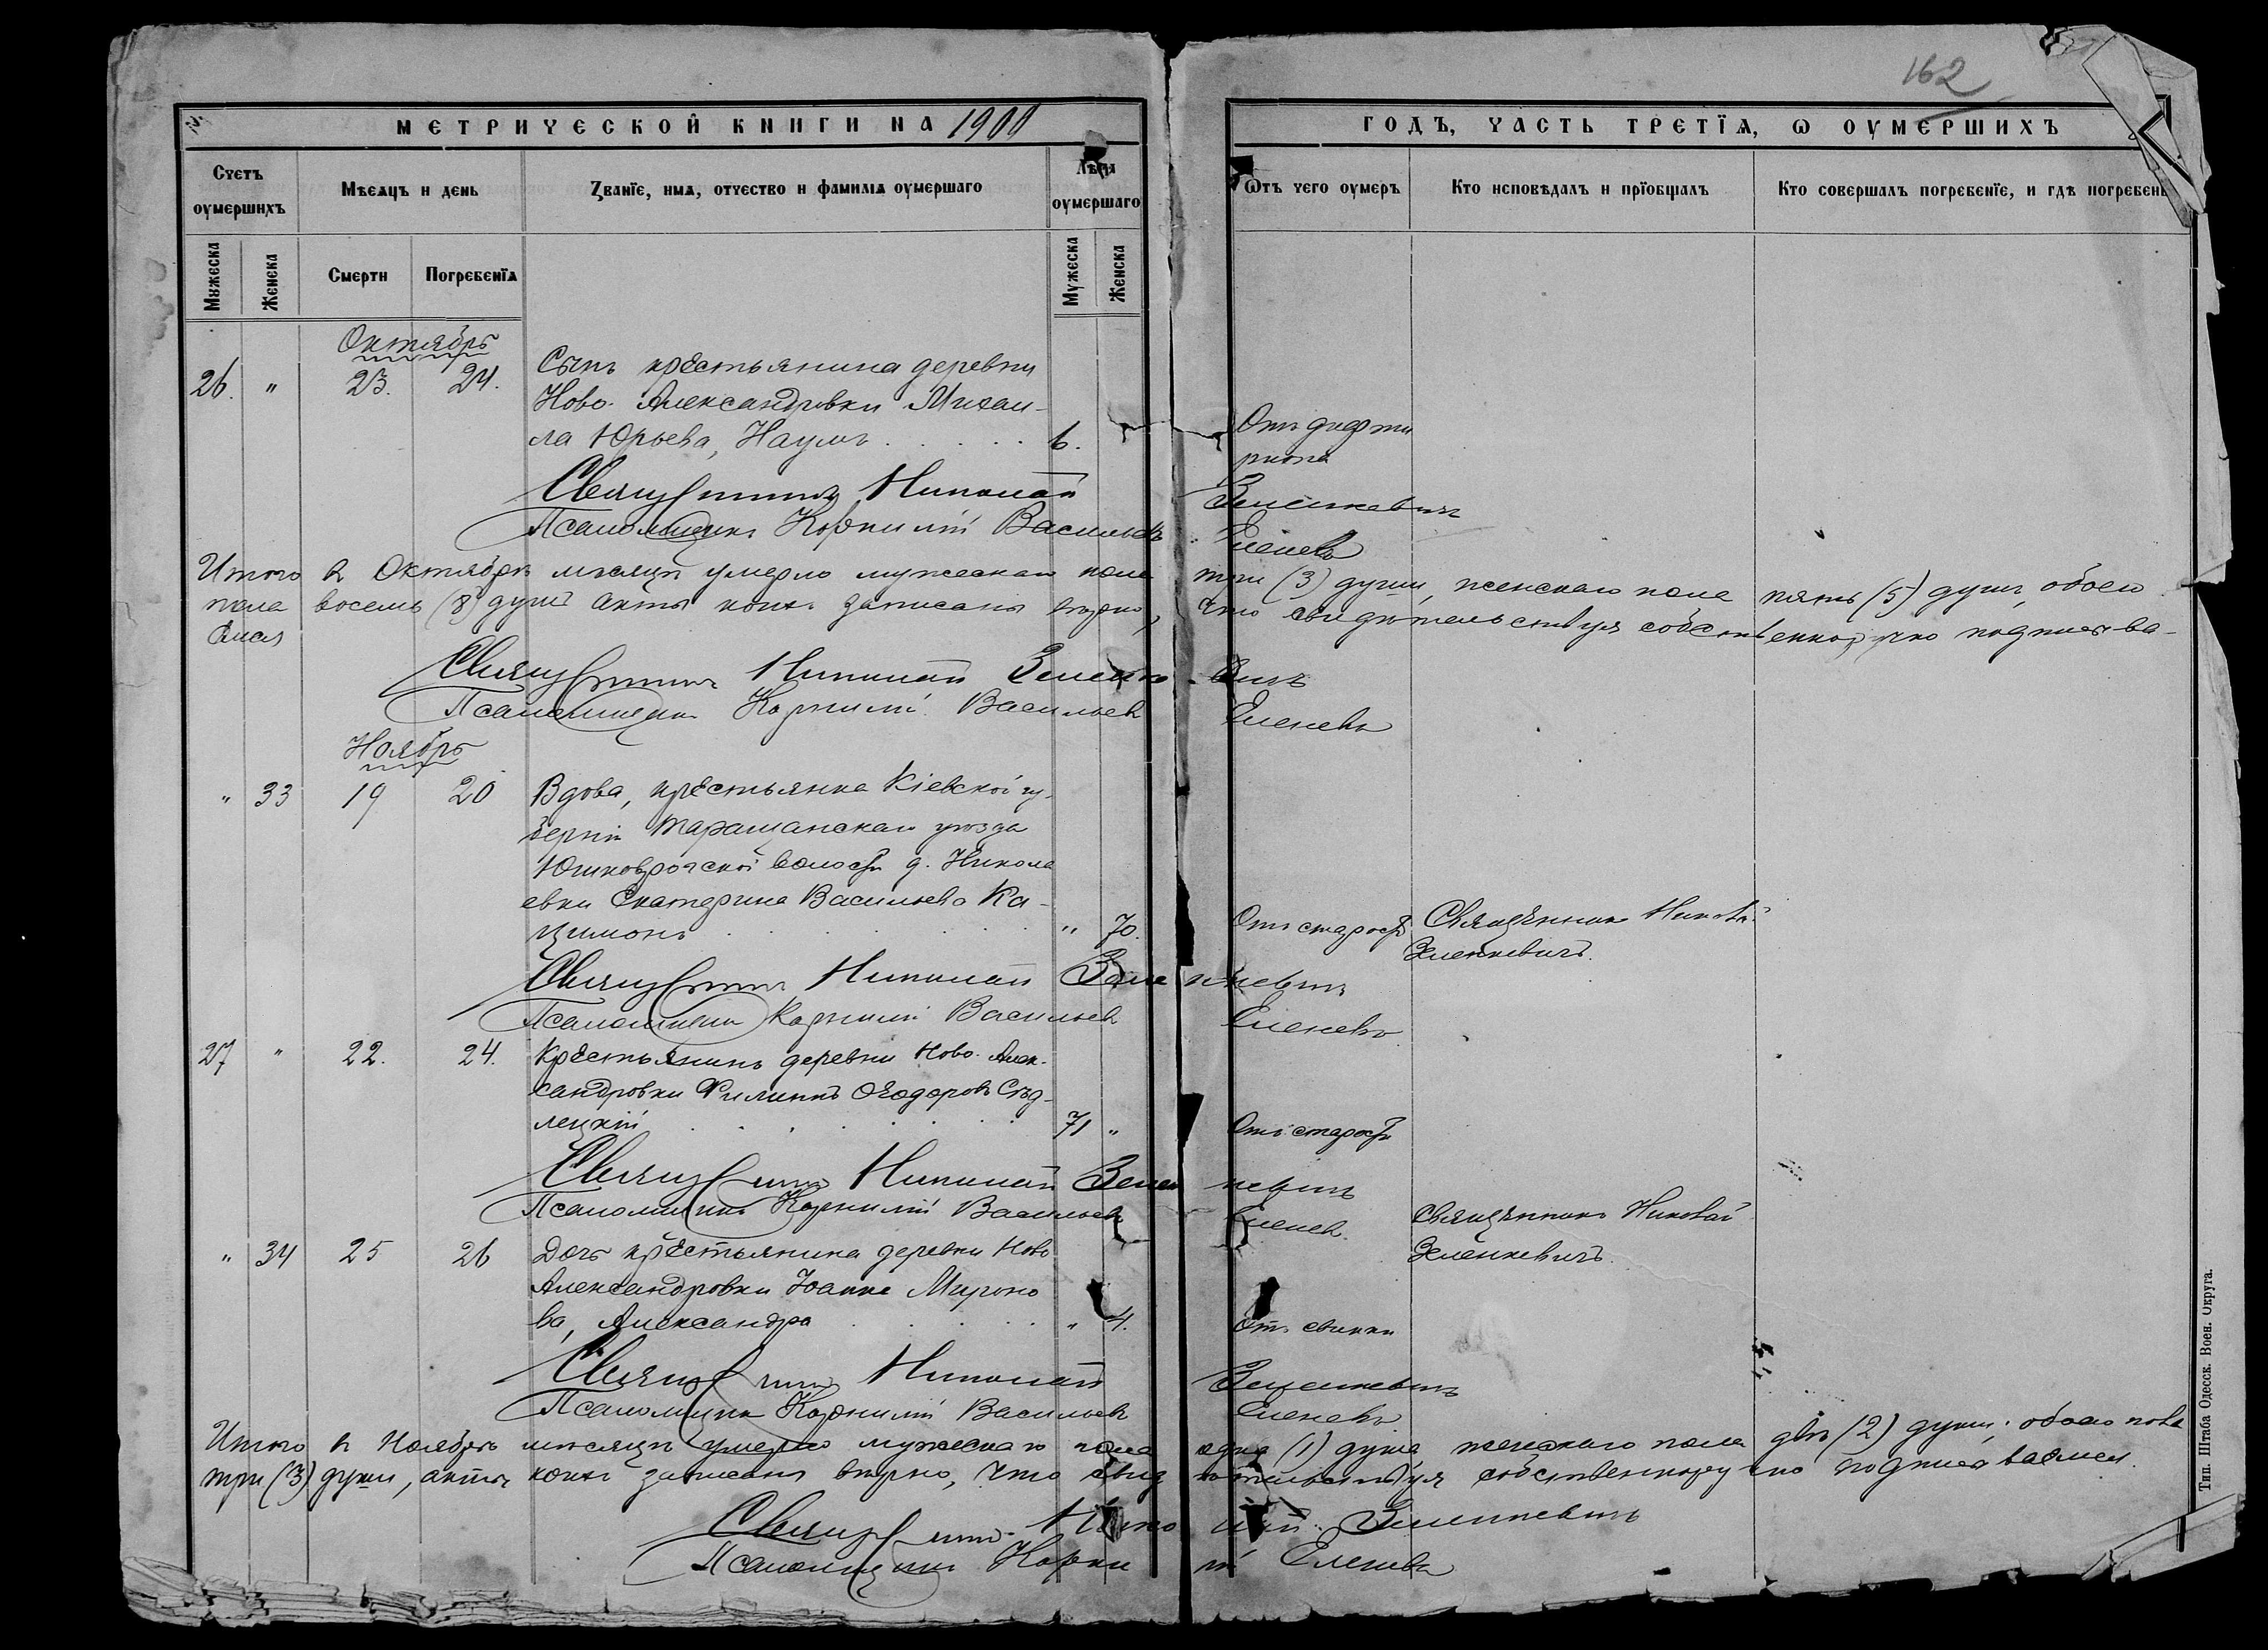 162
МЕТРИЧЕСКОЙ КНИГИ НА 1900
ГОДЪ, ЧАСТЬ ТРЕТЇѦ, Ѡ ОУМЕРШИХЪ
Счетъ оумершихъ
Мѣсяцъ и день
Званїе, имѧ, отчество и фамилїѧ оумершаго
Лѣта оумершаго
Ѿтъ чего оумеръ
Кто исповѣдалъ и прїобщалъ
Кто совершалъ погребенїе, и гдѣ погребенъ
Мужеска
Женска
Смерти
Погребенїѧ
Мужеска
Женска
Октябрь
26. " 23. 24. Сынъ крестьянина деревни
Ново-Александровки Михаи-
ла Юрьева, Наумъ 6. Отъ дифте
рита
Священникъ Николай Зеленкевичъ
Псаломщикъ Корнилій Васильевъ Еленевъ
Итого въ Октябрѣ мѣсяцѣ умерло мужескаго пола три (3) души, женскаго пола пять (5) душъ, обоего
пола восемь (8) душъ акты коихъ записаны вѣрно, что свидѣтельствуя собственноручно подписыва-
емся
Священникъ Николай Зеленкевичъ
Псаломщикъ Корнилій Васильевъ Еленевъ
Ноябрь
" 33 19 20 Вдова, крестьянка Кіевской гу-
берніи Таращанскаго уѣзда
Юшковрогской волости д. Никола
евки Екатерина Васильева Ка-
цимонъ " 70. Отъ старости Священникъ Николай
Зеленкевичъ.
Священникъ Николай Зеленкевичъ
Псаломщикъ Корнилій Васильевъ Еленевъ
27 " 22. 24. Крестьянинъ деревни Ново-Алек-
сандровки Филиппъ Ѳеодоровъ Сѣд-
лецкій 71 " Отъ старости
Священникъ Николай Зеленкевичъ
Псаломщикъ Корнилій Васильевъ Еленевъ. Священникъ Николай
Зеленкевичъ.
" 34 25 26 Дочь крестьянина деревни Ново
Александровки Іоанна Мироно
ва, Александра " 4. Отъ свинки
Священникъ Николай Зеленкевичъ
Псаломщикъ Корнилій Васильевъ Еленевъ
Итого въ Ноябрѣ мѣсяцѣ умерло мужескаго пола одна (1) душа женскаго пола двѣ (2) души; обоего пола
три (3) души, акты коихъ записаны вѣрно, что свидѣтельствуя собственноручно подписываемся.
Священникъ Николай Зеленкевичъ
Псаломщикъ Корнилій Еленевъ
Тип. Штаба Одесск. Воен. Округа.